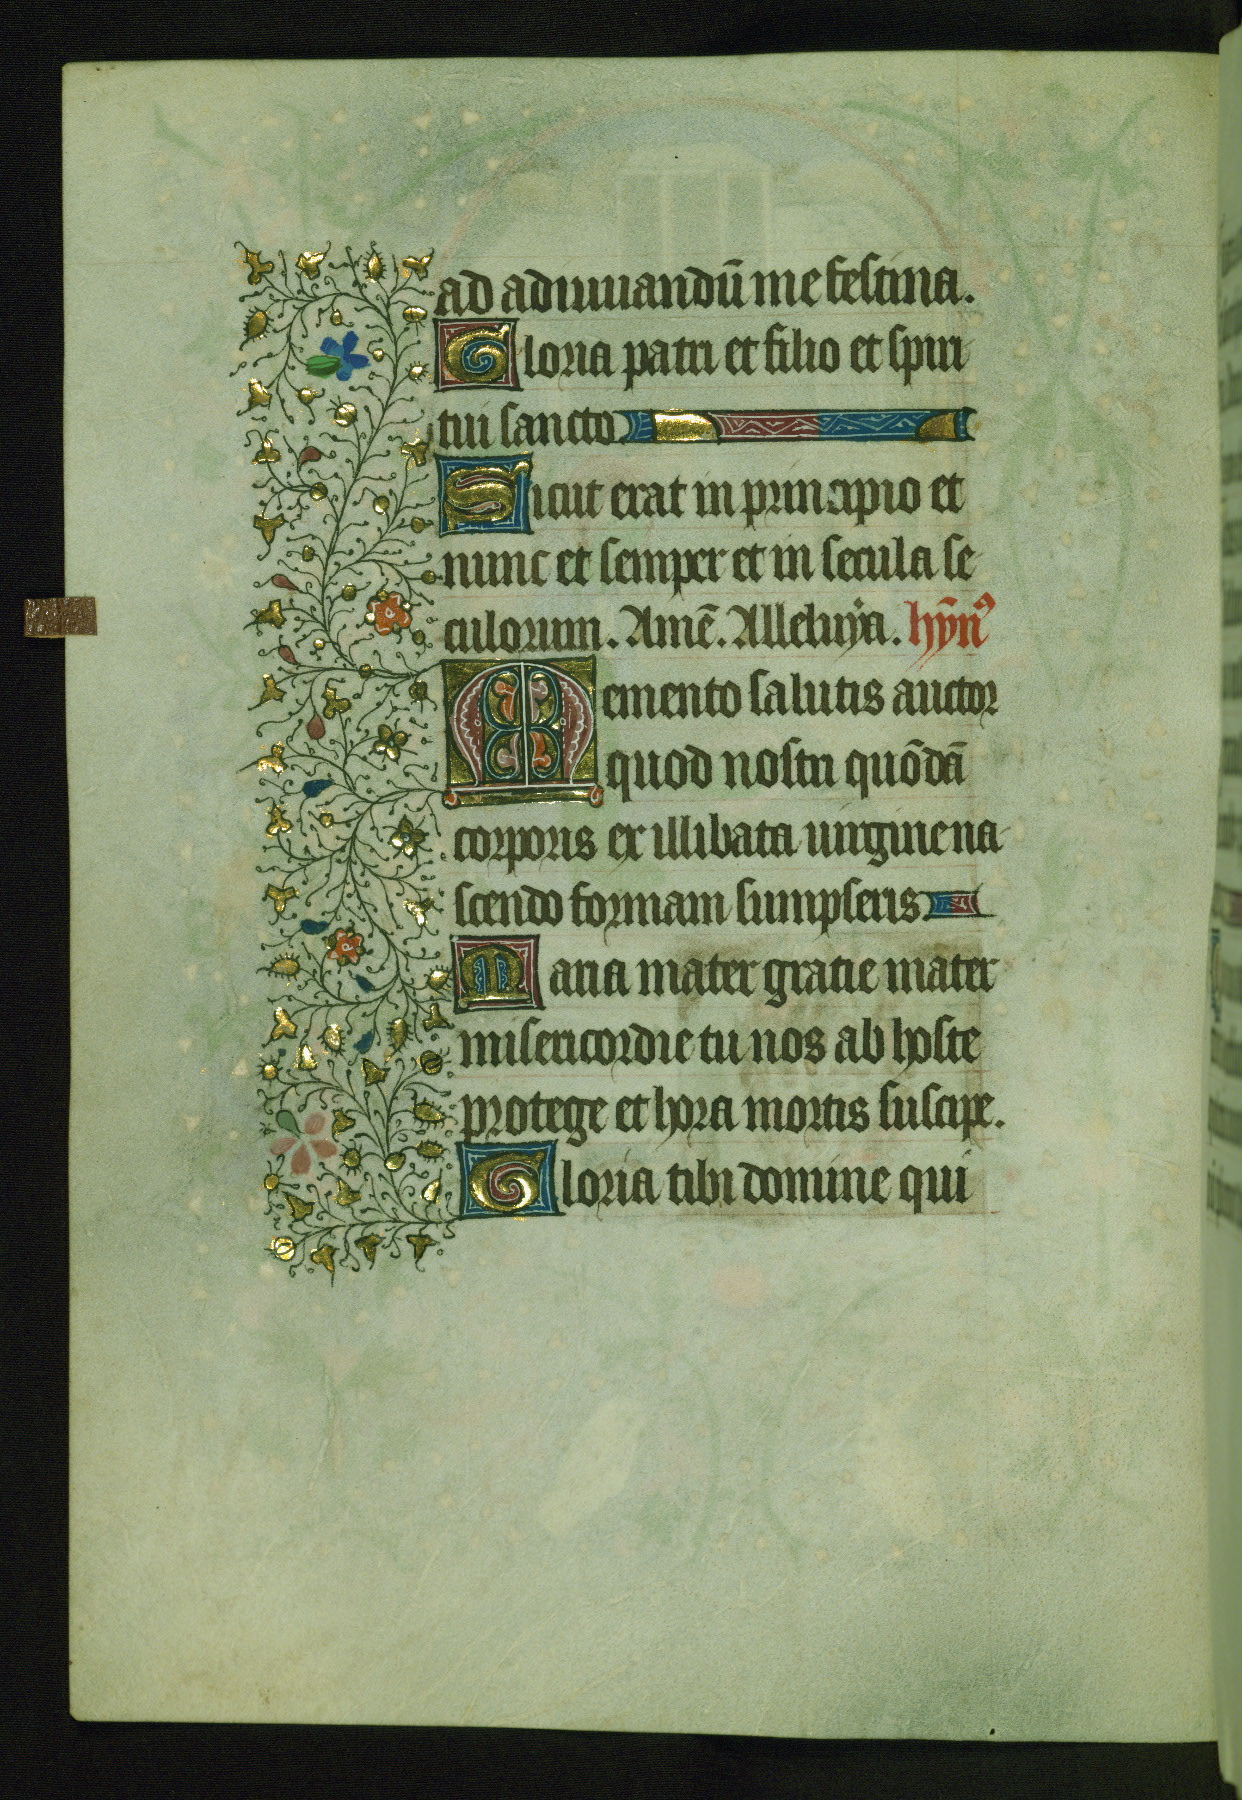 ad adiuuandū me festina.
Gloria patri et filio et spiri
tui sancto
Sicut erat in principio et
nunc et semper et in secula se
culorum. Amē. Alleluya. hȳn⁹
Memento salutis auctor
quod nostri quōdā
corporis ex illibata uirgine na
scendo formam sumpseris
Maria mater gratie mater
misericordie tu nos ab hoste
protege et hora mortis suscipe.
Gloria tibi domine qui